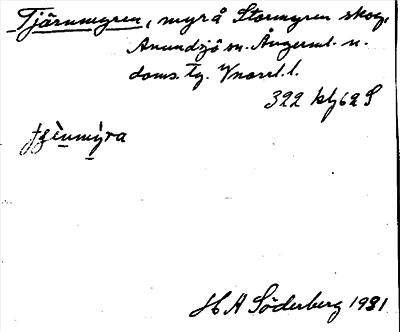 Tjärnmyren, myr å Stormyren skog,
Anundsjö sn. Ångerml. n.
doms. tg. Vnorrl. l.
322 kbl 62 S
H A Söderberg 1931